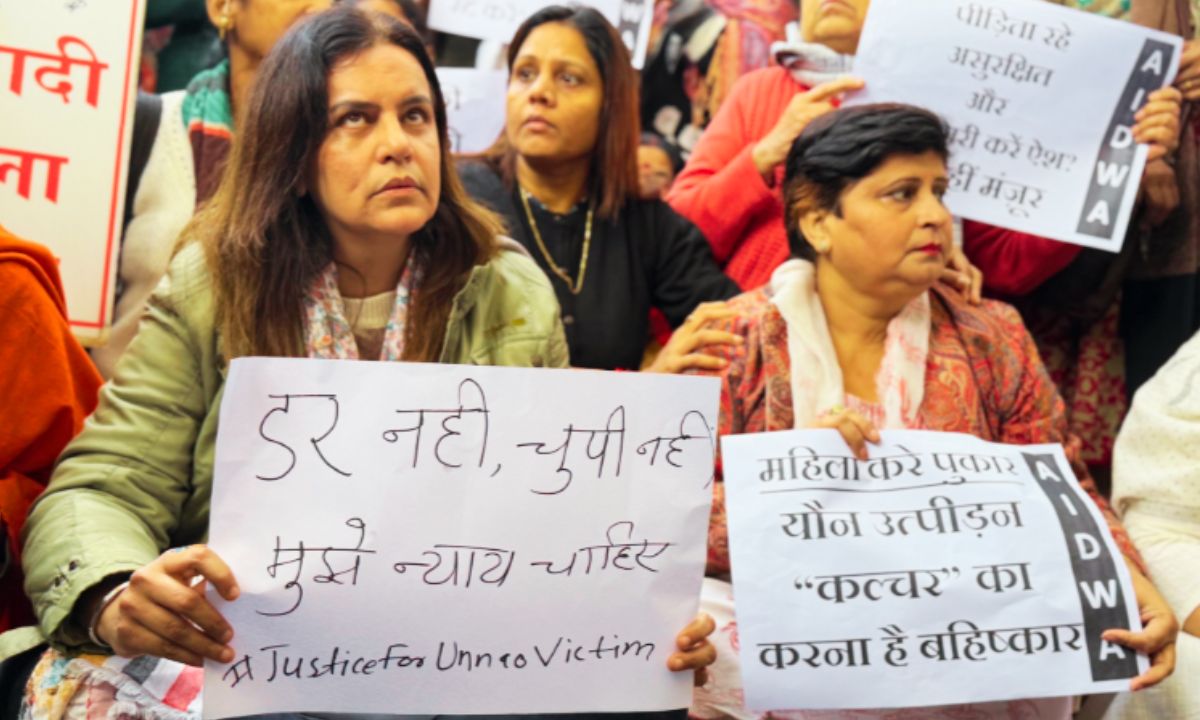 पीड़िता रहे
असुरक्षित
और
करें ऐश?
मंज़ूर
AIDWA
डर नही, चुपी नही
मुझे न्याय चाहिए
#JusticeforUnnaoVictim
महिला करे पुकार
यौन उत्पीड़न
“कल्चर” का
करना है बहिष्कार
AIDWA